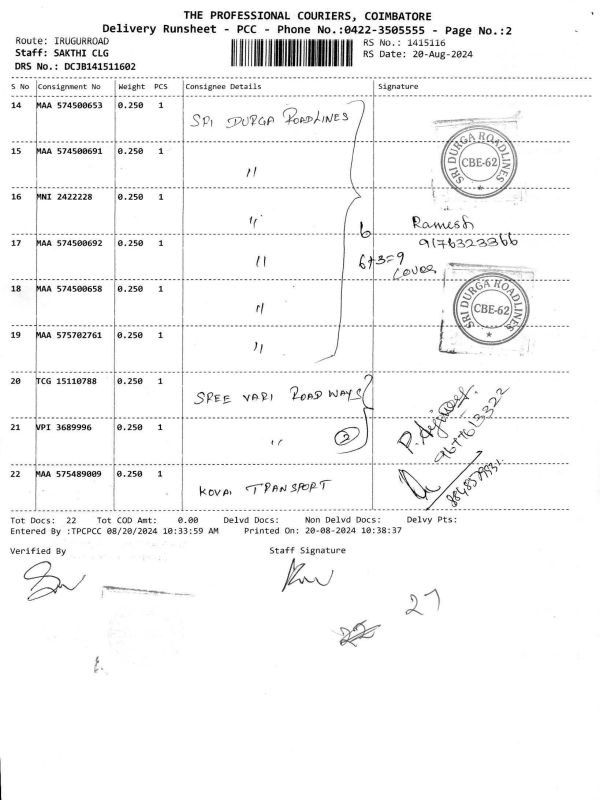 THE PROFESSIONAL COURIERS, COIMBATORE
Delivery Runsheet - PCC - Phone No.:0422-3505555 - Page No.:2
Route: IRUGURROAD
RS No.: 1415116
Staff: SAKTHI CLG
RS Date: 20-Aug-2024
DRS No.: DCJB141511602
S No Consignment No Weight PCS Consignee Details Signature
14 MAA 574500653 0.250 1 SRI DURGA ROADLINES
SRI DURGA ROADLINES
CBE-62
15 MAA 574500691 0.250 1 "
16 MNI 2422228 0.250 1 "
6 Ramesh
17 MAA 574500692 0.250 1 "
9176323366
6+3=9
cover
18 MAA 574500658 0.250 1 "
SRI DURGA ROADLINES
CBE-62
19 MAA 575702761 0.250 1 "
20 TCG 15110788 0.250 1 SREE VARI ROADWAYS
21 VPI 3689996 0.250 1 " 2
9677613322
22 MAA 575489009 0.250 1 KOVAI TRANSPORT
Tot Docs: 22 Tot COD Amt: 0.00 Delvd Docs: Non Delvd Docs: Delvy Pts:
Entered By :TPCPCC 08/20/2024 10:33:59 AM Printed On: 20-08-2024 10:38:37
Verified By Staff Signature
27
22